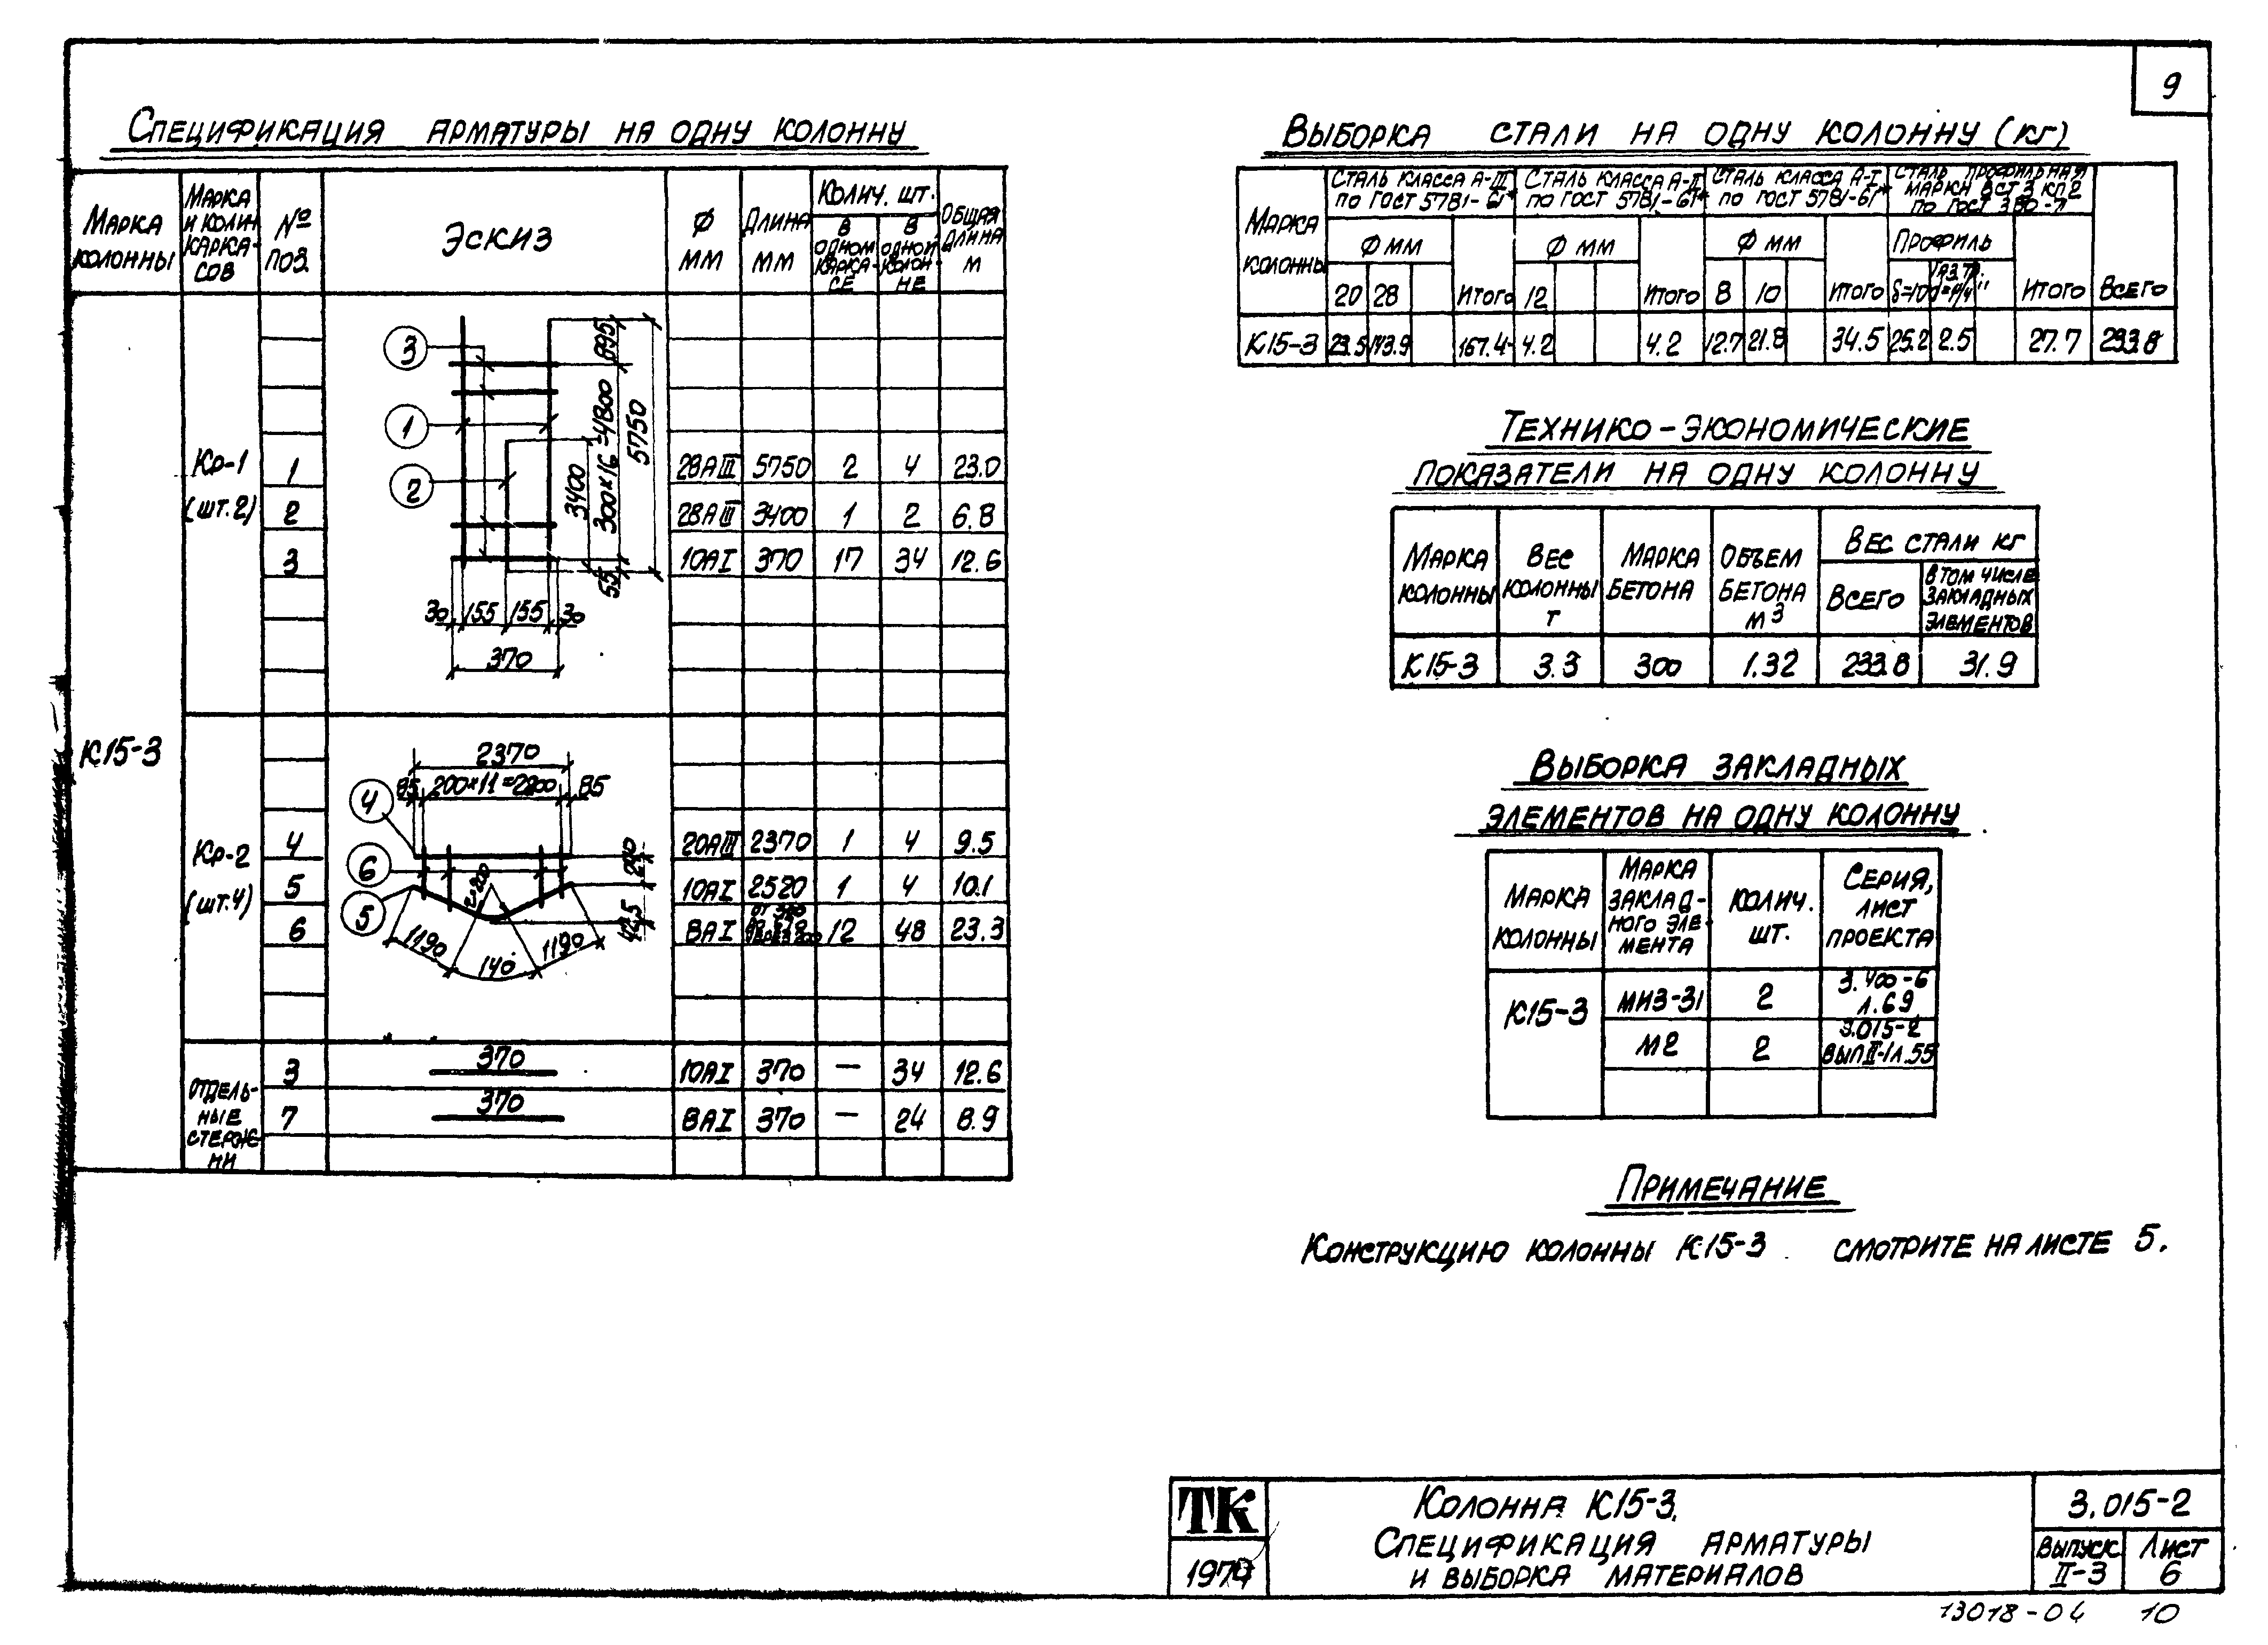 9
Спецификация арматуры на одну колонну
Марка колонны
Марка и колич каркасов
№ поз.
Эскиз
Ф мм
Длина мм
Колич. шт.
в одном каркасе
в одной колонне
Общая длина м
К15-3
Кр-1 (шт.2)
3
1
2
895
300×16=4800
5750
3400
55
30 155 155 30
370
1 28АIII 5750 2 4 23.0
2 28АIII 3400 1 2 6.8
3 10АI 370 17 34 12.6
Кр-2 (шт.4)
2370
85 200×11=2200 85
4
6
5
1190 140 1190
4 20АIII 2370 1 4 9.5
5 10АI 2520 1 4 10.1
6 8АI 12 48 23.3
Отдельные стержни
3 370 10АI 370 — 34 12.6
7 370 8АI 370 — 24 8.9
Выборка стали на одну колонну (кг)
Марка колонны
Сталь класса А-III по ГОСТ 5781-61*
Сталь класса А-II по ГОСТ 5781-61*
Сталь класса А-I по ГОСТ 5781-61*
Сталь профильная марки ВСт 3 кп2 по ГОСТ 380-71
Ф мм
Ф мм
Ф мм
Профиль
20 28 Итого 12 Итого 8 10 Итого δ=10 Итого Всего
К15-3 23.5 143.9 167.4 4.2 4.2 12.7 21.8 34.5 25.2 2.5 27.7 233.8
Технико-экономические
показатели на одну колонну
Марка колонны
Вес колонны т
Марка бетона
Объем бетона м3
Вес стали кг
Всего
в том числе закладных элементов
К15-3 3.3 300 1.32 233.8 31.9
Выборка закладных
элементов на одну колонну
Марка колонны
Марка закладного элемента
Колич. шт.
Серия, лист проекта
К15-3 МИ3-31 2 3.400-6 л.69
М2 2 3.015-2 вып II-1 л.55
Примечание
Конструкцию колонны К15-3 смотрите на листе 5.
ТК
Колонна К15-3.
Спецификация арматуры
и выборка материалов
3.015-2
Выпуск II-3
Лист 6
13018-04 10